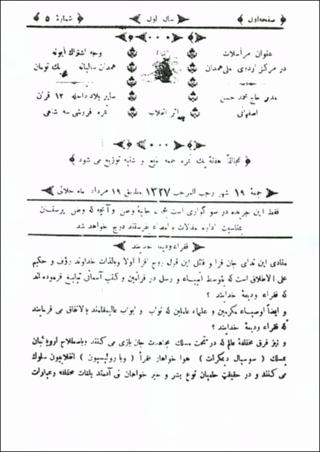 صفحه اول
سال اول
شماره ۵
عنوان مراسلات
وجه اشتراک آبونه
در مرکز اردوی ملی همدان
همدان سالیانه یک تومان
مدیر حاج محمد حسن
سایر بلاد داخله ۱۳ قران
اصفهانی
اثر انقلاب
نمره فروشی سه شاهی
عجالتاً هفتهٔ یک نمره جمعه طبع و شنبه توزیع می شود
جمعهٔ ۱۹ شهر رجب المرجب ۱۳۲۷ مطابق ۱۹ مرداد ماه جلالی
فقط این جریده در سوگواری است
خواهد شد
فقراء ودیعه خدایند
منادی این ندای جان فزا و قائل این قول روح افزا اولا وبالذات خداوند رؤف و حکیم
علی الاطلاق است که بتوسط انبیاء و رسل در فرامین و کتب آسمانی تبلیغ فرموده اند
که فقراء ودیعهٔ خدایند ؟
و ایضاً اوصیاء مکرمین و علماء عاملین که نواب و ابواب بالاتفاق می فرمایند
که فقراء ودیعهٔ خدایند ؟
و نیز فرق مختلفهٔ عالم که در تحت مسلک مجاهدت جان بازی می کنند و باصطلاح اروپائیان
مسلک ( سوسیال دیمکرات ) هوا خواهاز فقرا ( و با رولیسیون ) انقلابیون سلوک
می کنند و در حقیقت حامیان نوع بشر و خیر خواهان بنی آدمند بلغات مختلفه و عبارات